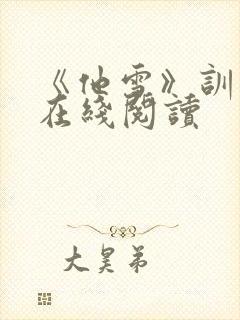 《他雪》訓
在綫閱讀
大昊弟